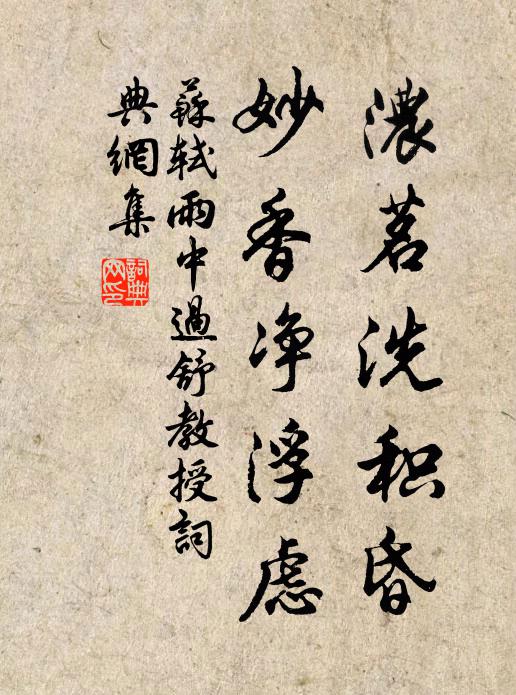 濃茗洗积昏
妙香净浮慮
蘇軾雨中過舒教授詞
典網集
詞典
网印